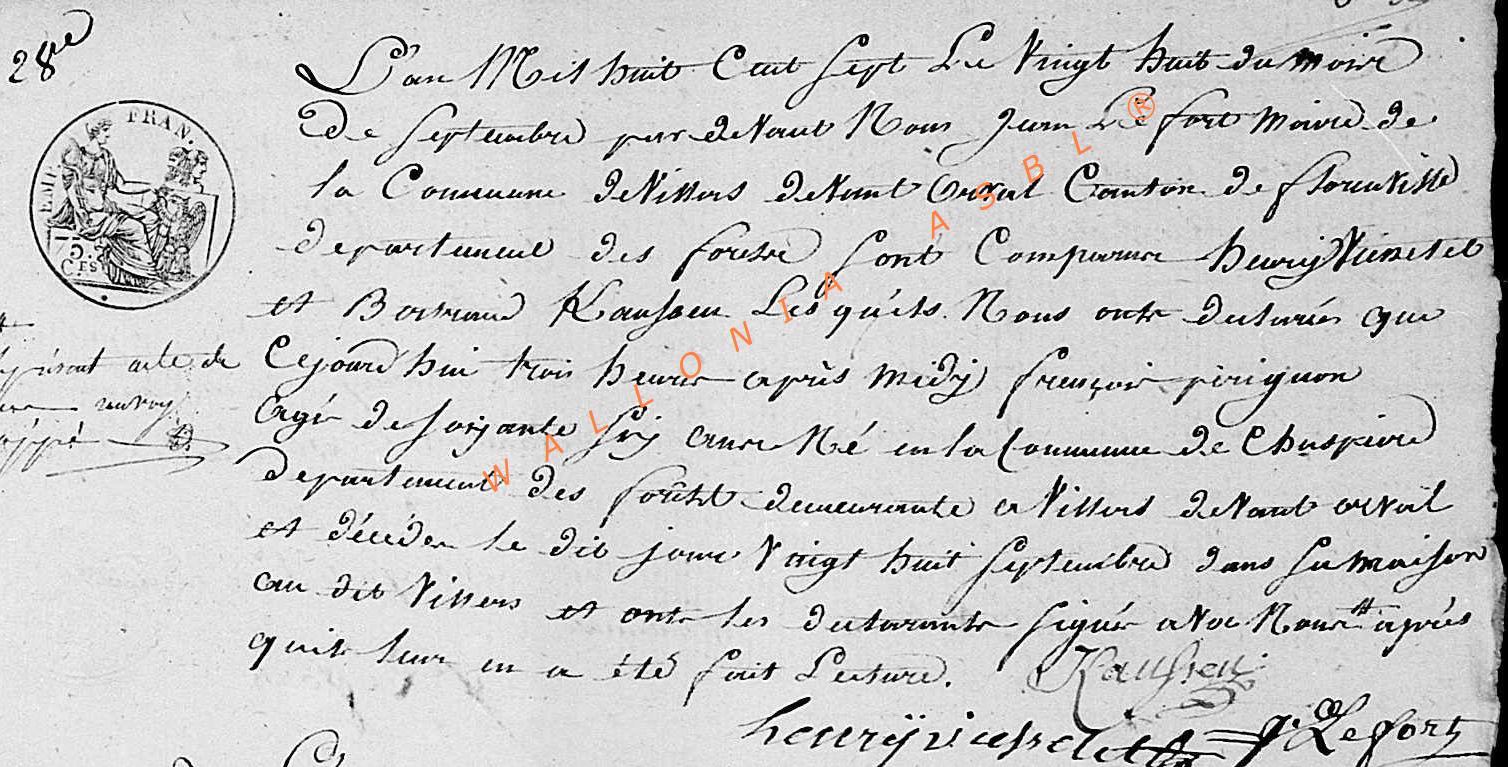 28re
L'an Mil huit Cent Sept Le Vingt huit du mois
De Septembre par devant Nous Jean Le fort Maire de
la Commune de Villers devant Orval Canton de florenville
departement des forest sont Comparus henry
et Kaussen Lesquéls Nous onts declarés que
Cejourd'hui trois heures après Midÿ françois perignon
Agé de soixante six ans Né en la Commune de Chaspierre
departement des forêst demeurante a Villers devant orval
et décéder le dit jour Vingt huit Septembre dans sa maison
au dit Villers et onts les declarants signés avec Nous # après
quils leur en a été fait Lecture.
Kaussen
henrÿ J. Lefort
EMP. FRAN.
75.
CES
#
présent acte de
WALLONIA ASBL ®